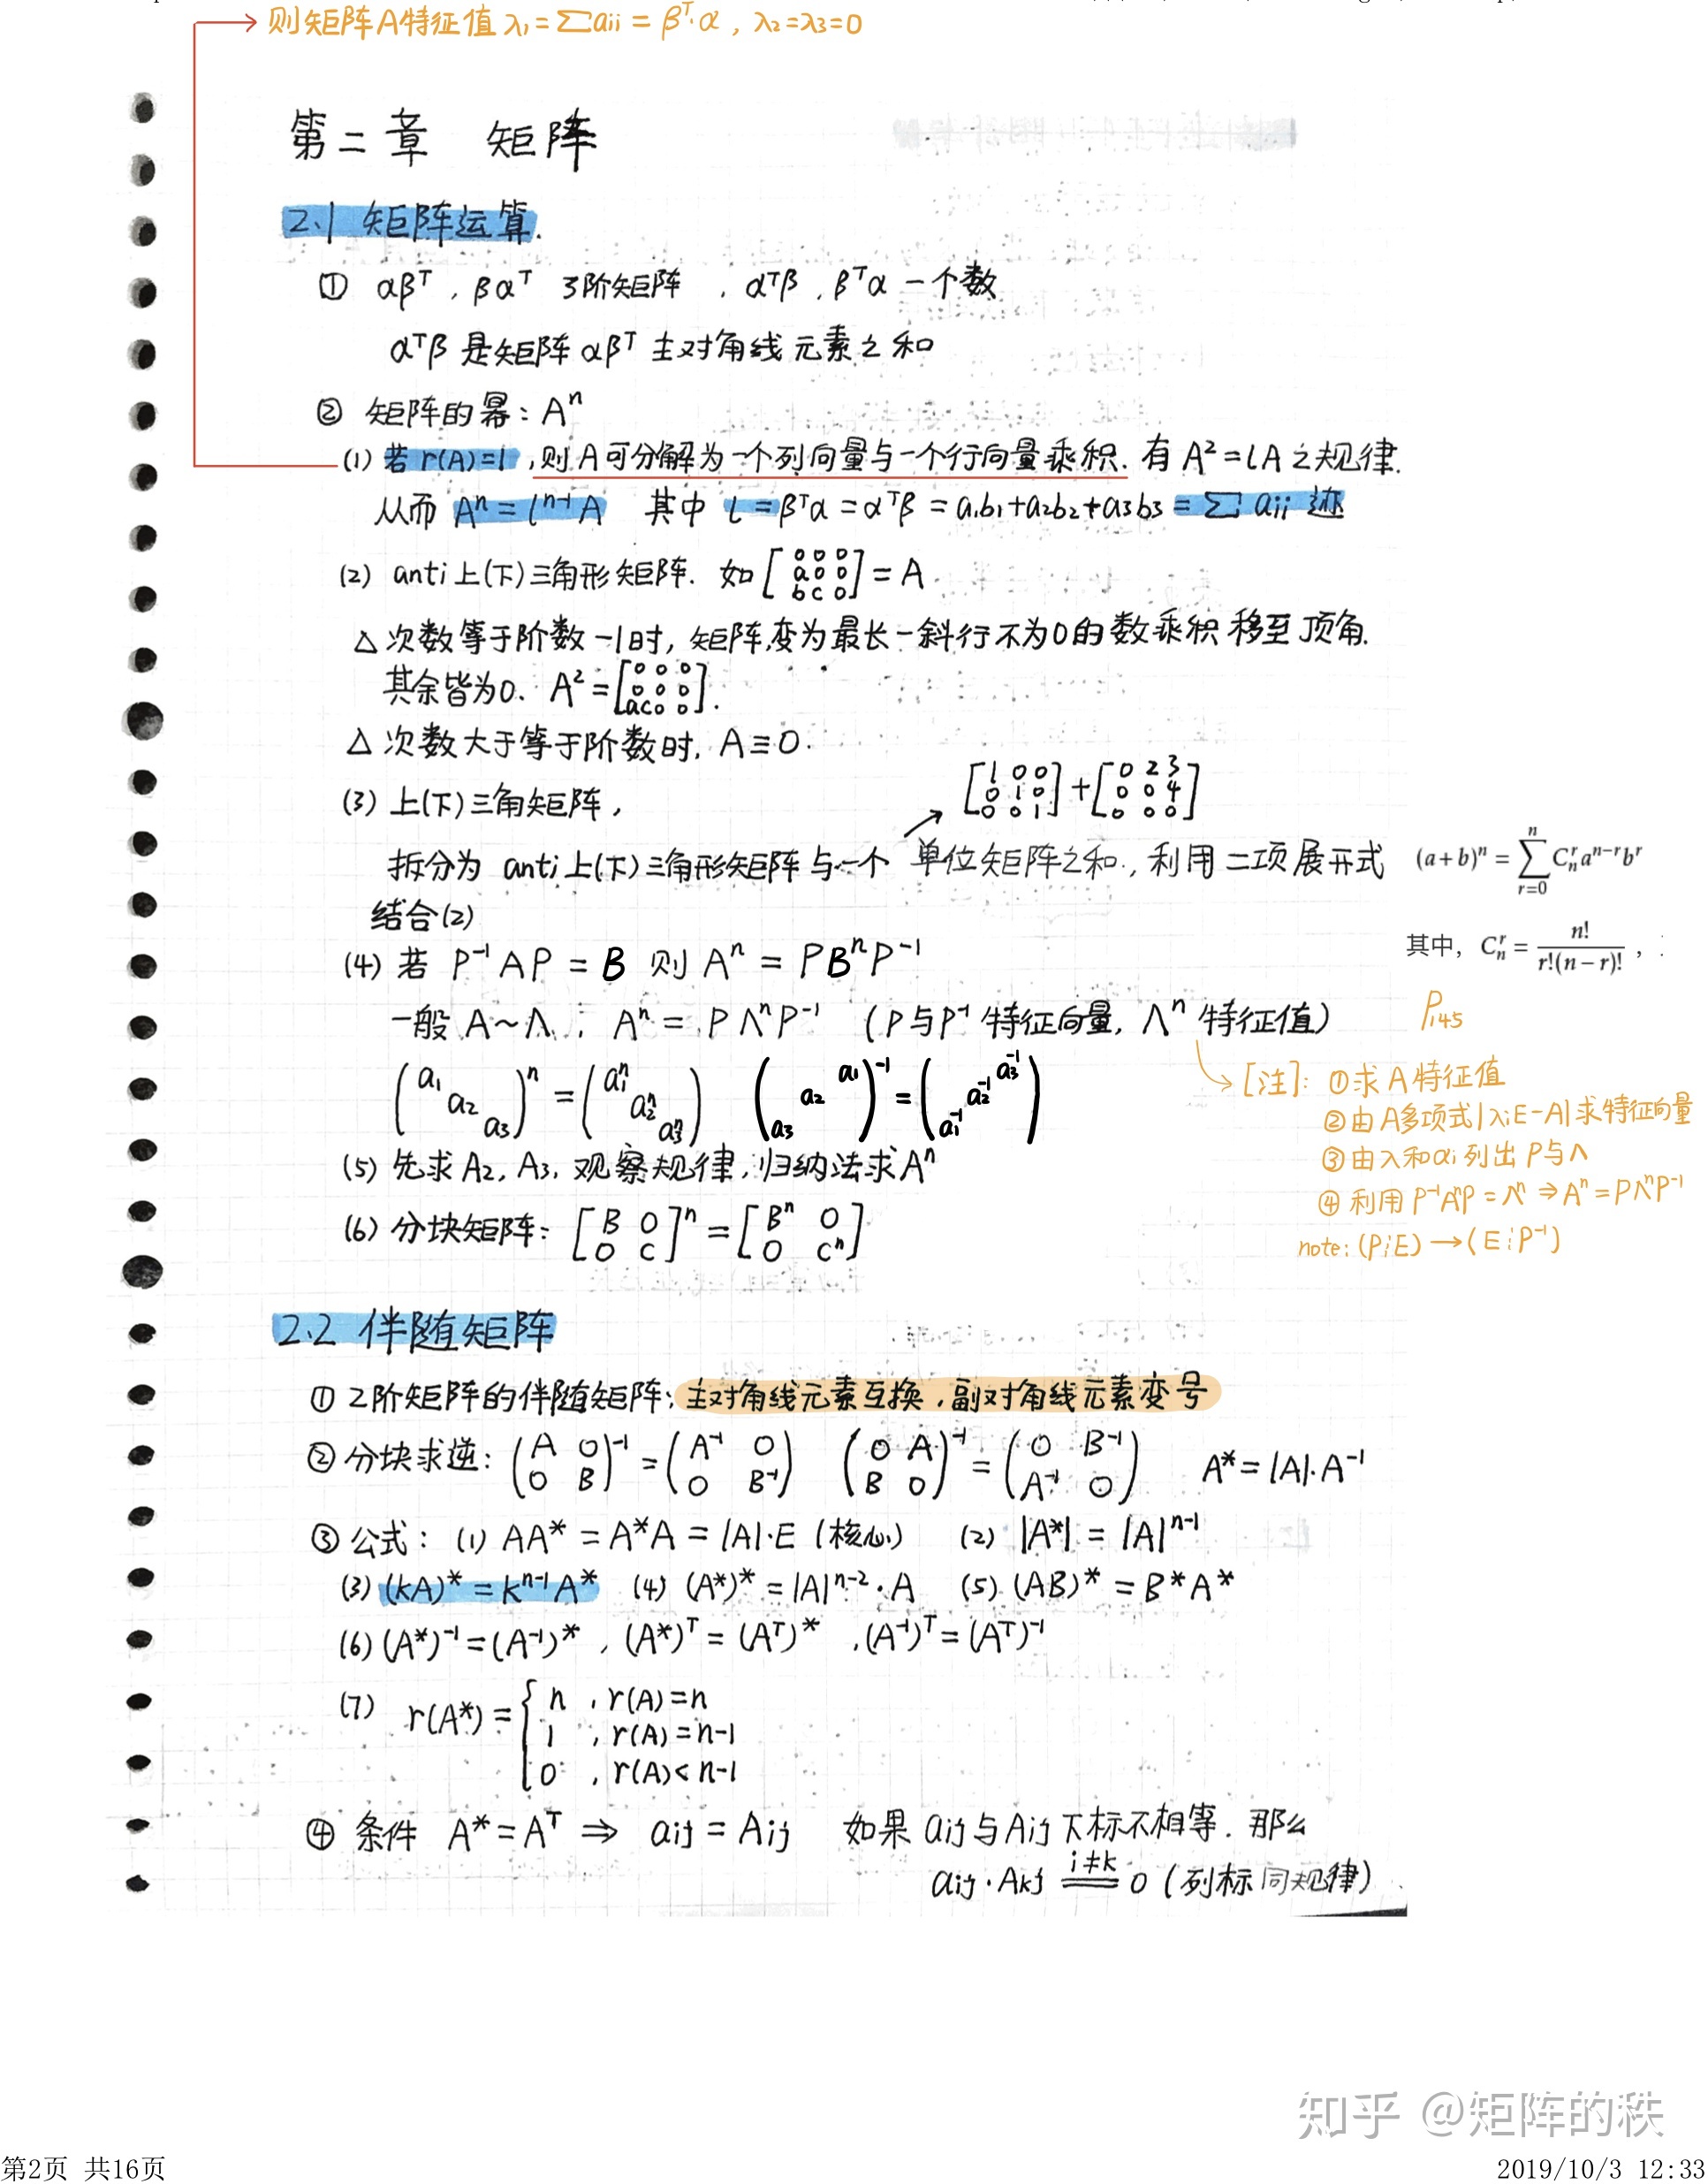 则矩阵A特征值 λ₁=∑aii = βᵀ·α , λ₂=λ₃=0
第二章 矩阵
2.1 矩阵运算.
① αβᵀ , βαᵀ 3阶矩阵 , αᵀβ , βᵀα 一个数
αᵀβ 是矩阵 αβᵀ 主对角线元素之和
② 矩阵的幂: Aⁿ
(1) 若 r(A)=1 ,则A可分解为一个列向量与一个行向量乘积. 有 A²=lA 之规律.
从而 Aⁿ = lⁿ⁻¹A 其中 l = βᵀα = αᵀβ = a₁b₁+a₂b₂+a₃b₃ = ∑ aii 迹
(2) anti上(下)三角形矩阵. 如 [0 0 0; a 0 0; b c 0] = A
△ 次数等于阶数-1时, 矩阵变为最长一斜行不为0的数乘积移至顶角.
其余皆为0. A² = [0 0 0; 0 0 0; ac 0 0].
△ 次数大于等于阶数时, A≡0.
[1 0 0; 0 1 0; 0 0 1] + [0 2 3; 0 0 4; 0 0 0]
(3) 上(下)三角矩阵,
拆分为 anti上(下)三角形矩阵与一个 单位矩阵之和, 利用二项展开式 (a+b)ⁿ = ∑ₙ₌ C
结合(2)
其中, Cₙʳ = n!/(r!(n−r)!) ,
(4) 若 P⁻¹AP = B 则 Aⁿ = PBⁿP⁻¹
一般 A~Λ ∴ Aⁿ = PΛⁿP⁻¹ (P与P⁻¹ 特征向量, Λⁿ 特征值)
P₁₄₅
(a₁ a₂ a₃)ⁿ = (a₁ⁿ a₂ⁿ a₃ⁿ) (a₁ a₂ a₃)⁻¹ = (a₃⁻¹ a₂⁻¹ a₁⁻¹)
[注]: ①求A特征值
②由A多项式|λᵢE-A|求特征向量
③由λ和αᵢ列出 P与Λ
④利用 P⁻¹AⁿP = Λⁿ ⇒ Aⁿ = PΛⁿP⁻¹
note: (P⋮E) → (E⋮P⁻¹)
(5) 先求A₂, A₃, 观察规律, 归纳法求Aⁿ
(6) 分块矩阵: [B O; O C]ⁿ = [Bⁿ O; O Cⁿ]
2.2 伴随矩阵
① 2阶矩阵的伴随矩阵: 主对角线元素互换, 副对角线元素变号
② 分块求逆: (A O; O B)⁻¹ = (A⁻¹ O; O B⁻¹) (O A; B O)⁻¹ = (O B⁻¹; A⁻¹ O) A* = |A|·A⁻¹
③ 公式: (1) AA* = A*A = |A|·E (核心) (2) |A*| = |A|ⁿ⁻¹
(3) (kA)* = kⁿ⁻¹A* (4) (A*)* = |A|ⁿ⁻²·A (5) (AB)* = B*A*
(6) (A*)⁻¹ = (A⁻¹)* , (A*)ᵀ = (Aᵀ)* , (A⁻¹)ᵀ = (Aᵀ)⁻¹
(7) r(A*) = { n , r(A)=n
1 , r(A)=n-1
0 , r(A)<n-1
④ 条件 A* = Aᵀ ⇒ aij = Aij 如果 aij与Aij下标不相等. 那么
aij·Akj =(i≠k)= 0 (列标同规律)
知乎 @矩阵的秩
第2页 共16页
2019/10/3 12:33